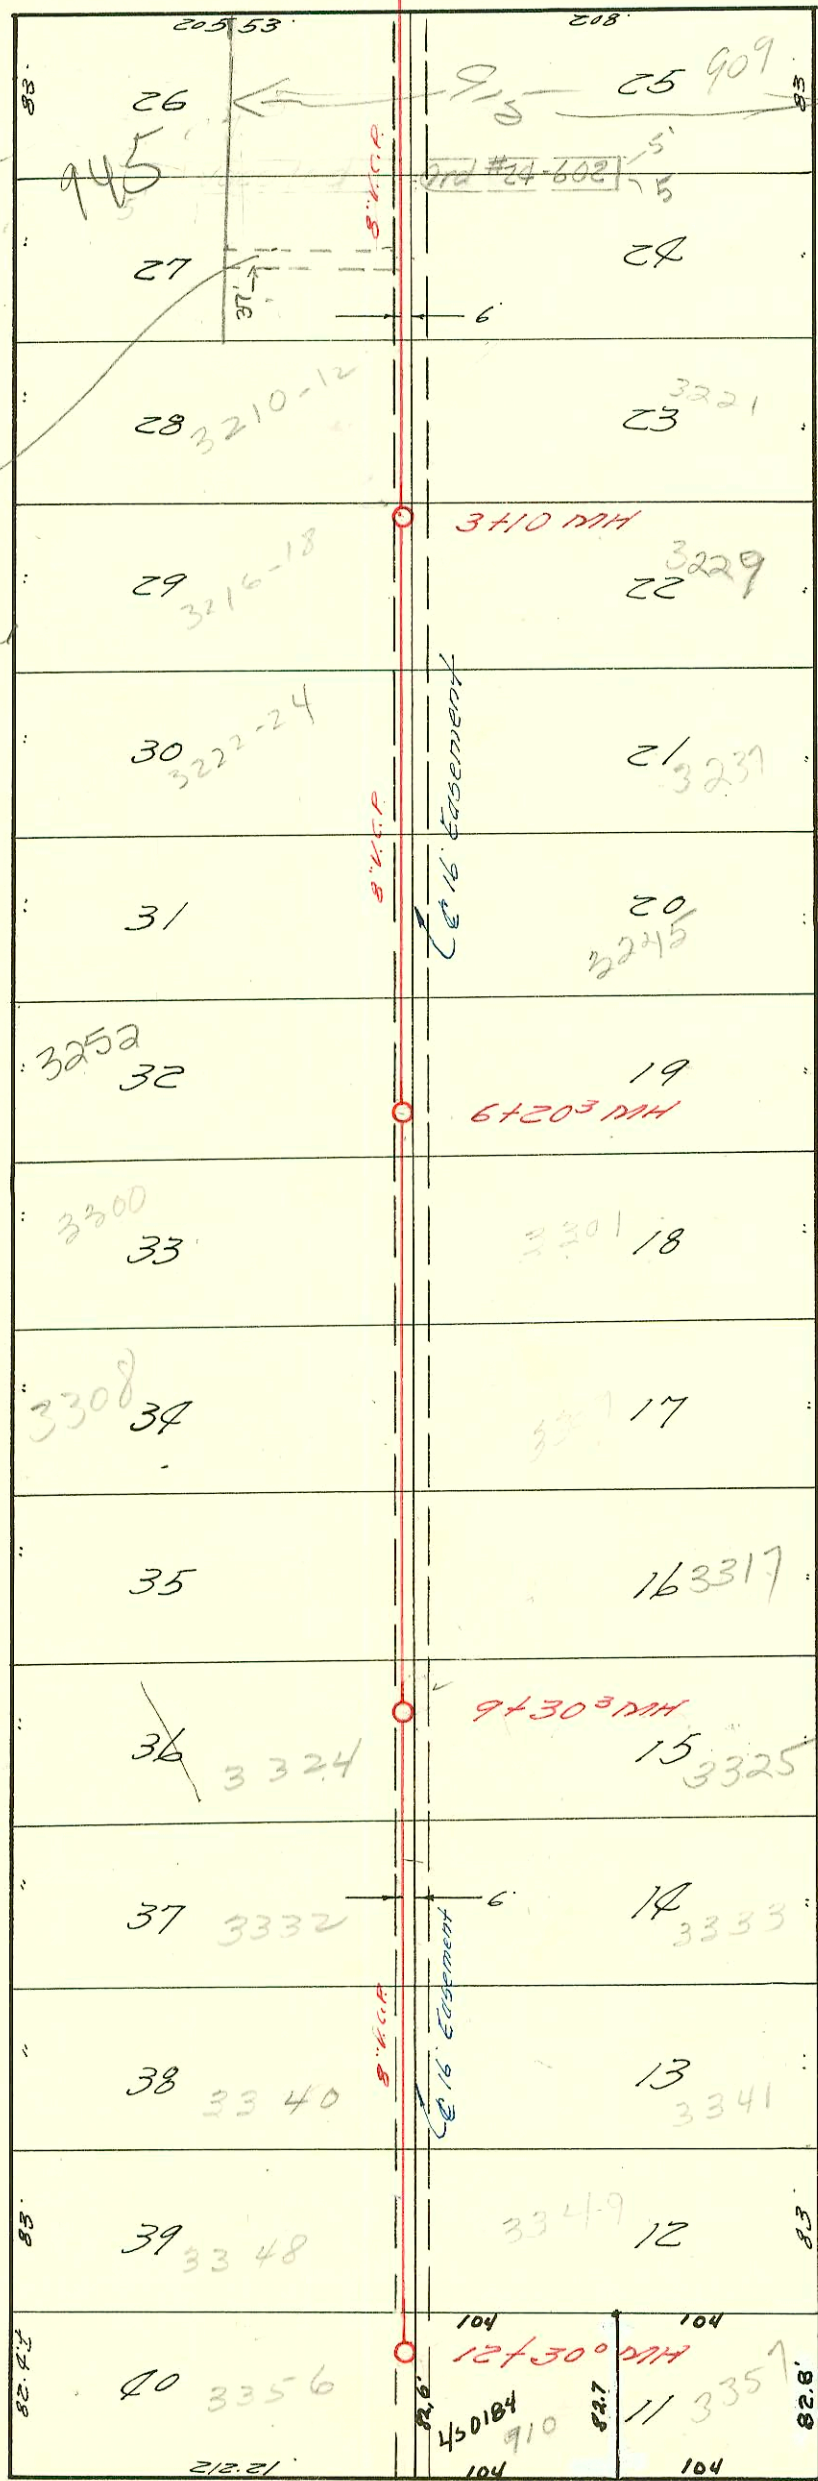 205.53'
208'
83'
26
25
909
83'
915
945
8" V.C.P.
Ord #24-602
5'
5
27
24
37'
6'
28
3210-12
23
3221
3+10 MH
29
3216-18
22
3229
30
3222-24
21
3237
8" V.C.P.
℄ 16' Easement
31
20
3245
3252
32
19
6+20³ MH
3300
33
3301
18
3308
34
17
35
16
3317
9+30³ MH
36
3324
15
3325
37
3332
6'
14
3333
8" V.C.P.
℄ 16' Easement
38
3340
13
3341
83'
39
3348
3349
12
83'
104
104
12+30⁰ MH
82.42
40
3356
82.6'
450184
910
82.7
11
3357
82.8'
212.21'
104
104